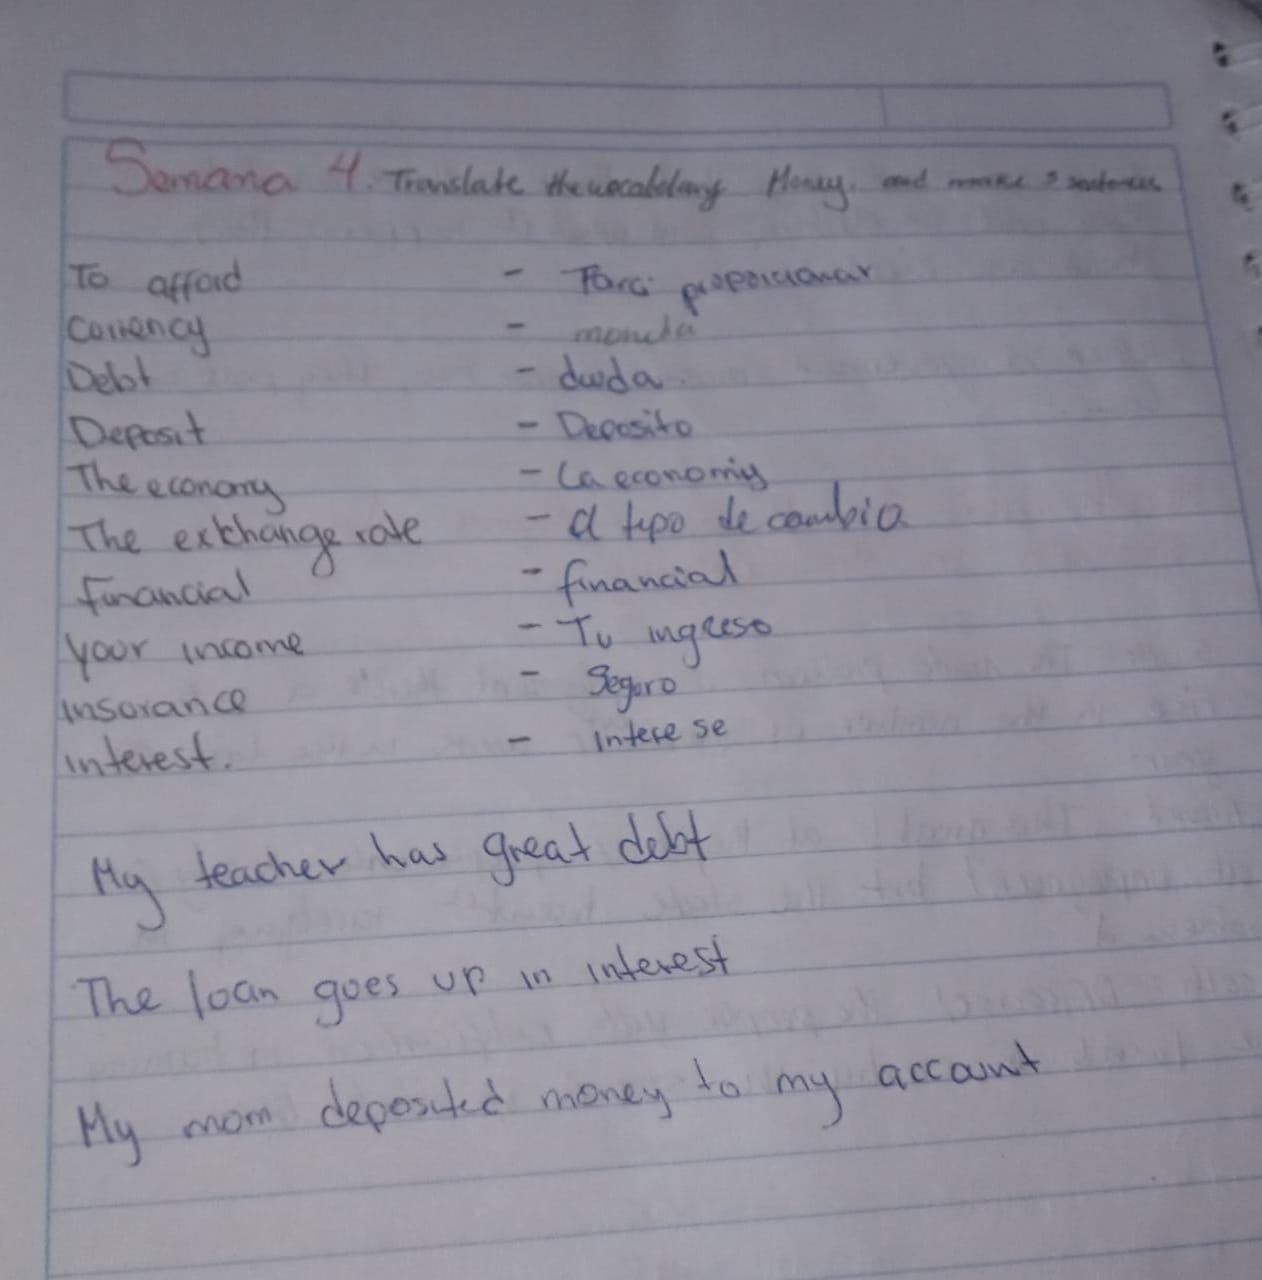 Semana 4. Translate the vocabulary Money. and make 3 sentences
To afford - Para proporcionar
Currency - moneda
Debt - deuda.
Deposit - Deposito
The economy - La economiy
The exkhange rate - el tipo de cambio
Financial - financial
your income - Tu ingreso
insurance - Seguro
interest. - Interese
My teacher has great debt
The loan goes up in interest
My mom deposited money to my account